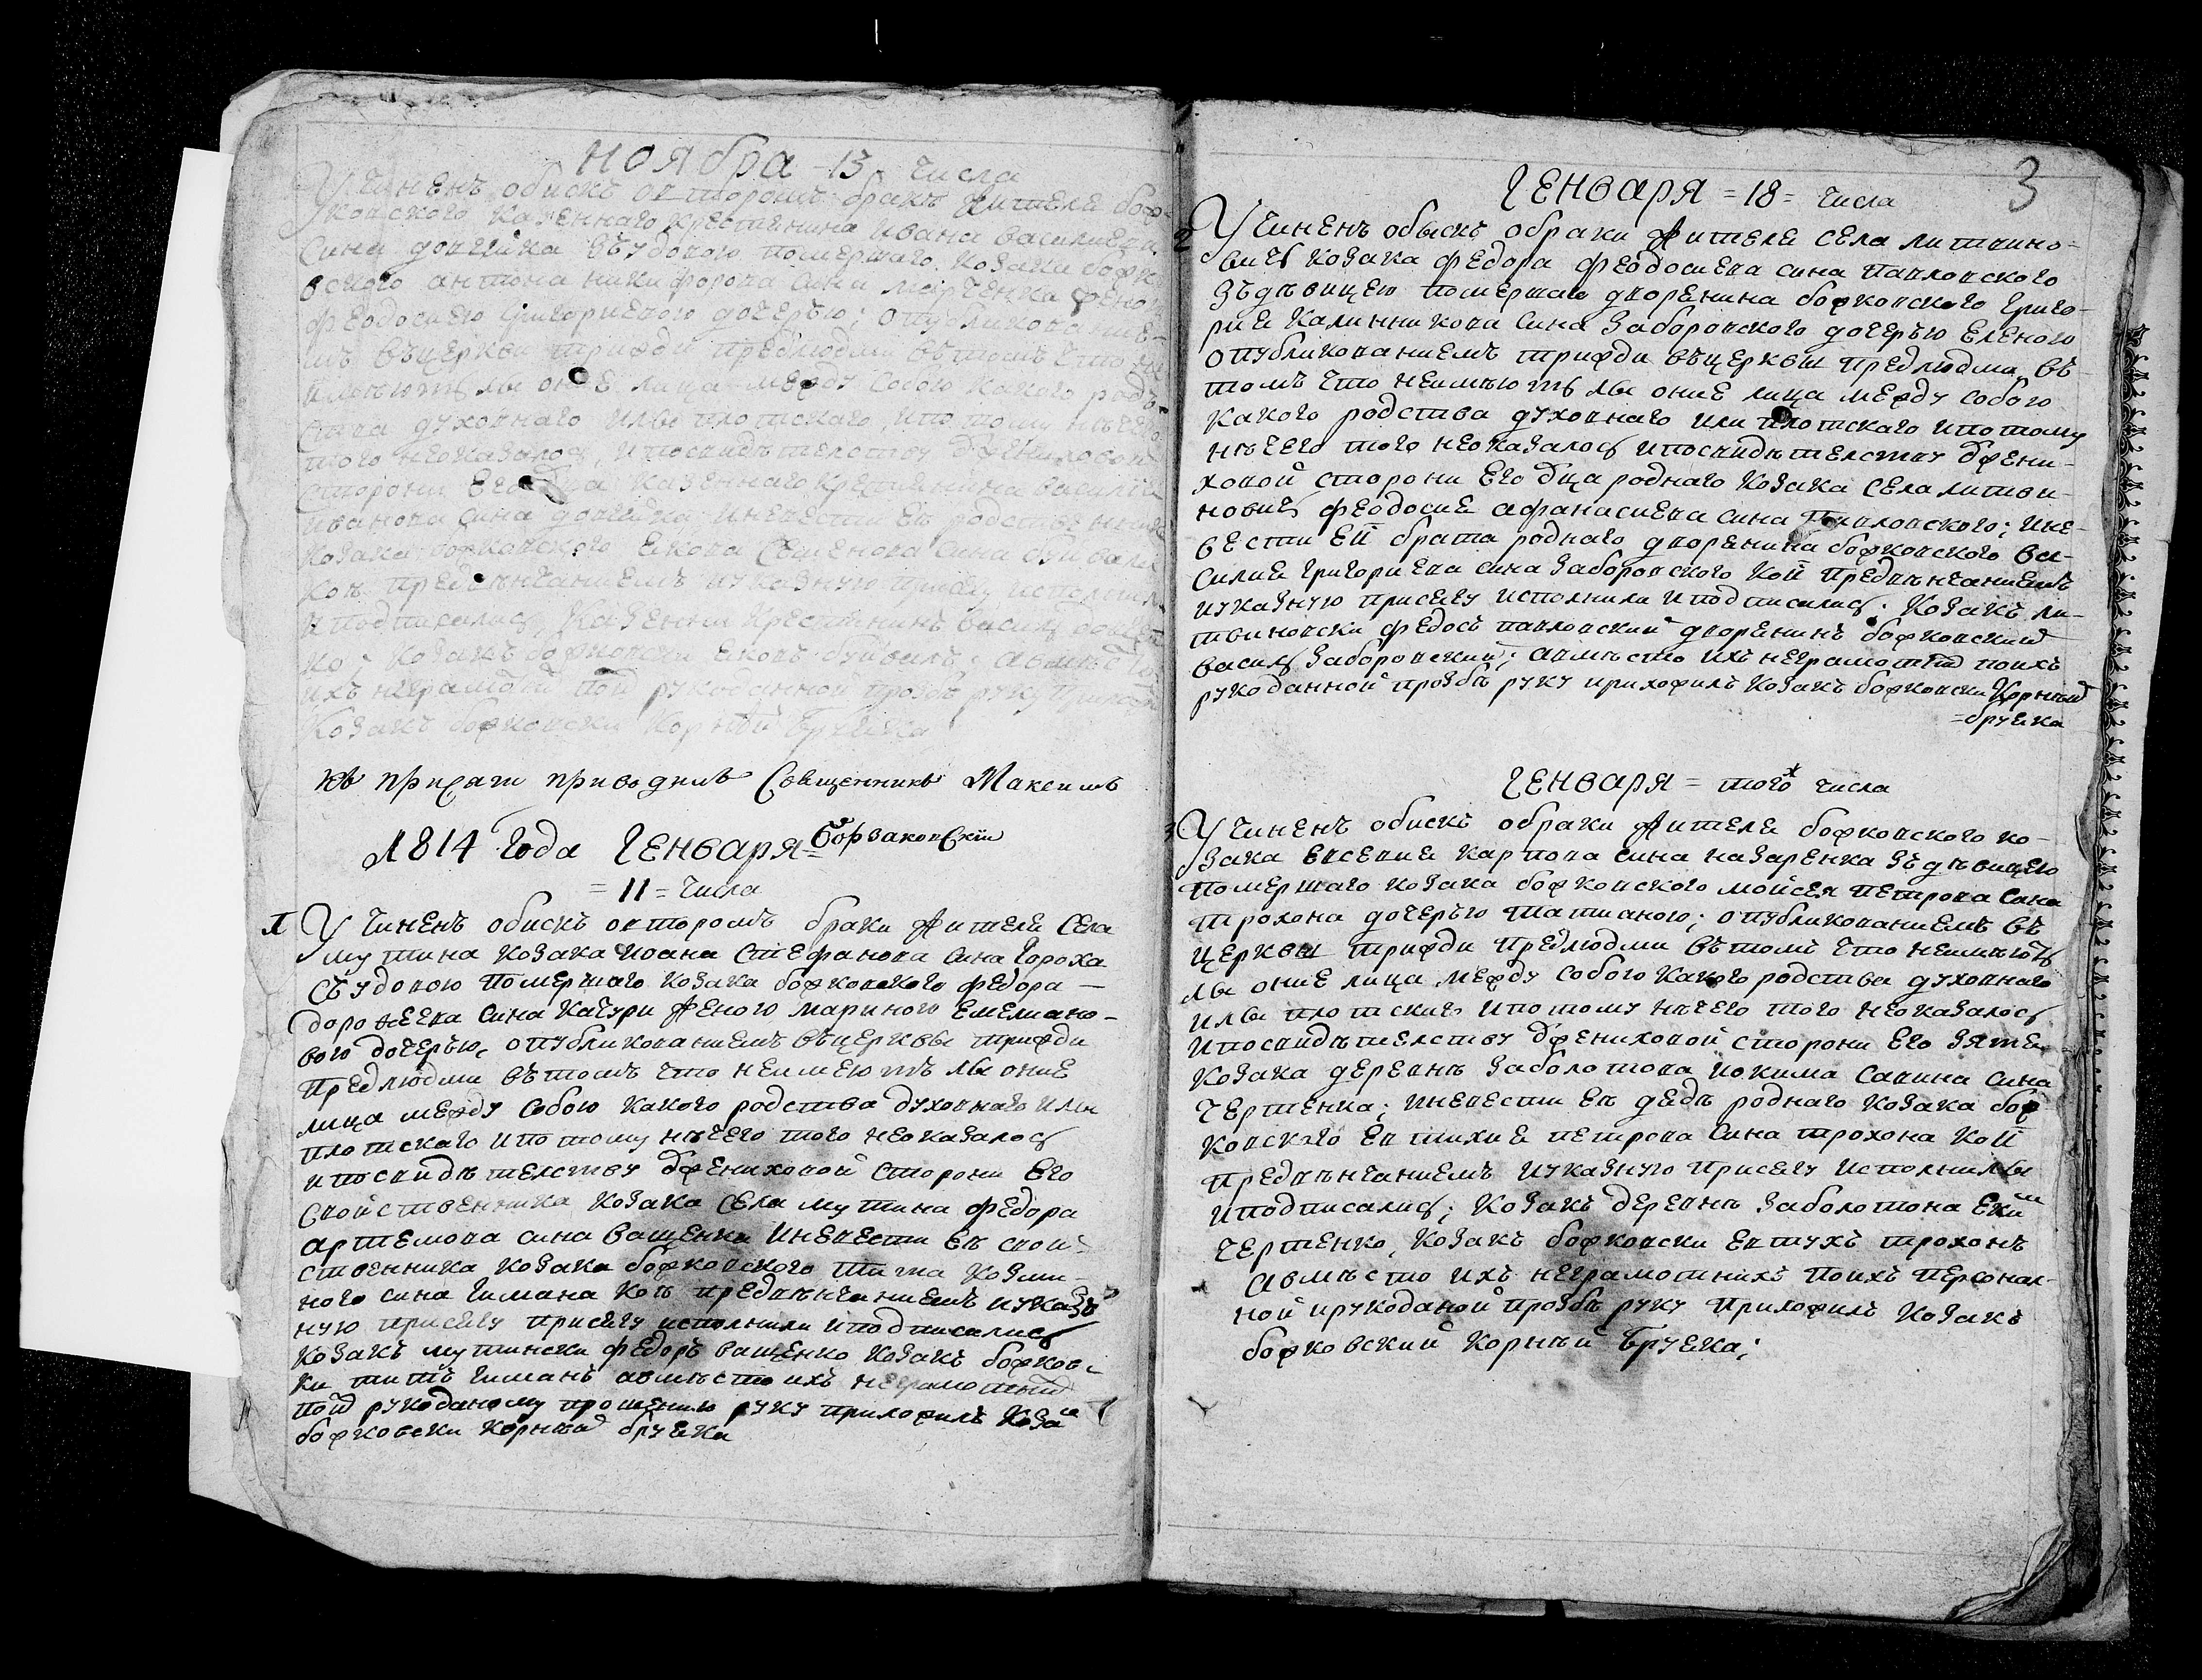 ноября 13 числа
Учиненъ обискъ овторомъ бракѣ жителя бож-
ковского казенного крестянина Ивана василиева
сина довгаика въ удовою помершаго козака божко-
вского антона никифорова сина марченка женою
феодосиею григориевою дочерью; опубликование-
мъ въцеркви трижди предлюдми вътомъ что не
имѣютъ лы оние лица между собою какого родъ-
ства духовнаго илы плотскаго, ипотому нѣчего
того неоказалось, ипосвидѣтелству ѿжениховой
сторони его казенного крестянина василия
иванова сина довгаика иневести ея родственника
козака божковского якова семенова сина
кои предвѣнчаниемъ иуказную присягу исполнили
иподписались. казенни крестянинъ васил довгаи-
ко; козакъ божковски яковъ авмѣсто
ихъ неграмотних поихъ рукоданной прозбѣ руку приложилъ
козакъ божковски корнѣй бруяка
къ присяги приводилъ Священникъ Максимъ
Борзаковскiй
1814 года Генваря =
= 11 = числа
1 Учиненъ обискъ овторомъ браки жителя села
мутина козака иоана стефанова сина гороха
съ удовою помершаго козака божковского федора
дорофеева сина качури женою мариною емелиано-
вою дочерью, опубликованиемъ въцерквы трижди
предлюдми вътомъ что неимеютъ лы оние
лица между собою какого родства духовнаго илы
плотскаго ипотому нѣчего того неоказалось
ипосвидѣтелству ѿжениховой сторони его
свойственника козака села мутина федора
артемова сина ващенка иневести ея свой-
ственника козака божковского тита козми-
ного сина гимана кои предвѣнчаниемъ иуказ-
ную присягу присягу исполнили иподписались
козакъ мутински федоръ ващенко козакъ божковс-
ки титъ гиманъ авмѣсто ихъ неграмотних
поих рукоданому прошению руку приложилъ козак
божковски корнѣй бруяка
3
Генваря = 18 = числа
2 Учиненъ обыскъ обраки жителя села литвино-
вичъ козака федора феодосиева сина павловского
зъдѣвицею помершаго дворенина божковского григо-
рия калинникова сина заборовского дочерью еленою
опубликованиемъ трижди въцеркви предлюдми въ
томъ что неимѣютъ лы оние лица между собою
какого родства духовнаго или плотскаго ипотому
нѣчего того неоказалось ипосвидѣтелству ѿжени-
ховой сторони его ѿца роднаго козака села литви-
новичъ феодосия афанасиева сина павловского; ине-
вести ей брата роднаго дворенина божковского ва-
силия григориева сина заборовского кой предвѣнчаниемъ
иуказную присягу исполнили иподписались. козакъ ли-
твиновски федосъ павловский дворенинъ божковский
василь заборовский; авмѣсто ихъ неграмотних поихъ
рукоданной прозбѣ руку приложилъ козакъ божковски корнѣй
=бруяка
Генваря = того* числа
3 Учиненъ обискъ обраки жителя божковского ко-
зака евсевия карпова сина назаренка зъдѣвицею
помершаго козака божковского мойсея петрова сина
трохона дочерью татианою; опубликованиемъ въ
церквы трижди предлюдми вътомъ что неимѣютъ
лы оние лица между собою какого родства духовнаго
илы плотскаго ипотому нѣчего того неоказалось
ипосвидѣтелству ѿжениховой сторони его зятя
козака деревнѣ заболотова иокима савина сина
чертенка; иневести ея дядѣ роднаго козака бож
ковского евтихия петрова сина трохона кой
предвѣнчаниемъ иуказную присягу исполнилы
иподписались; козакъ деревнѣ заболотова еким
чертенко, козакъ божковски евтухъ трохонъ
авмѣсто ихъ неграмотнихъ поихъ персонал-
ной ирукоданой прозбѣ руку приложилъ козакъ
божковский корнѣй бруяка;